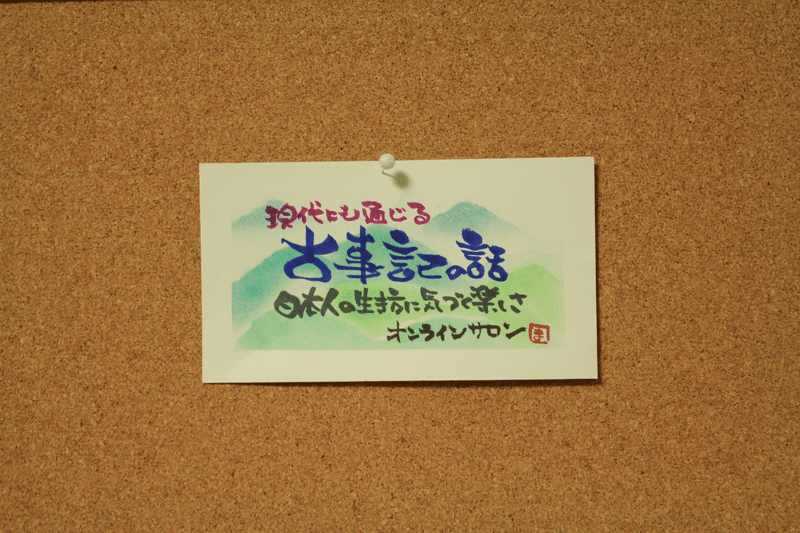 現代にも通じる
古事記の話
日本人の生き方に気づく楽しさ
オンラインサロン